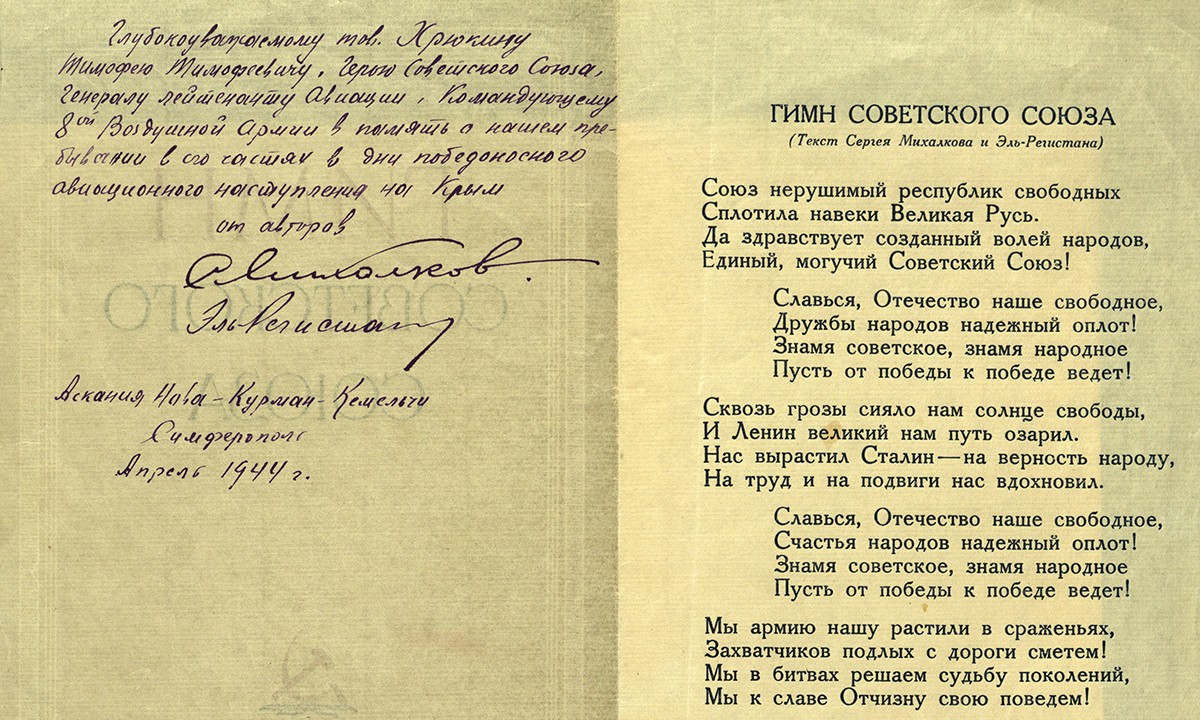 Глубокоуважаемому тов. Хрюкину
Тимофею Тимофеевичу, Герою Советского Союза,
Генералу лейтенанту Авиации, Командующему
8ой Воздушной Армии в память о нашем пре-
бывании в его частях в дни победоносного
авиационного наступления на Крым
от авторов
СМихалков.
Эль-Регистан
Аскания Нова - Курман - Кемельчи
Симферополь
Апрель 1944 г.
ГИМН
СОВЕТСКОГО
СОЮЗА
ГИМН СОВЕТСКОГО СОЮЗА
(Текст Сергея Михалкова и Эль-Регистана)
Союз нерушимый республик свободных
Сплотила навеки Великая Русь.
Да здравствует созданный волей народов,
Единый, могучий Советский Союз!
Славься, Отечество наше свободное,
Дружбы народов надежный оплот!
Знамя советское, знамя народное
Пусть от победы к победе ведет!
Сквозь грозы сияло нам солнце свободы,
И Ленин великий нам путь озарил.
Нас вырастил Сталин—на верность народу,
На труд и на подвиги нас вдохновил.
Славься, Отечество наше свободное,
Счастья народов надежный оплот!
Знамя советское, знамя народное
Пусть от победы к победе ведет!
Мы армию нашу растили в сраженьях,
Захватчиков подлых с дороги сметем!
Мы в битвах решаем судьбу поколений,
Мы к славе Отчизну свою поведем!